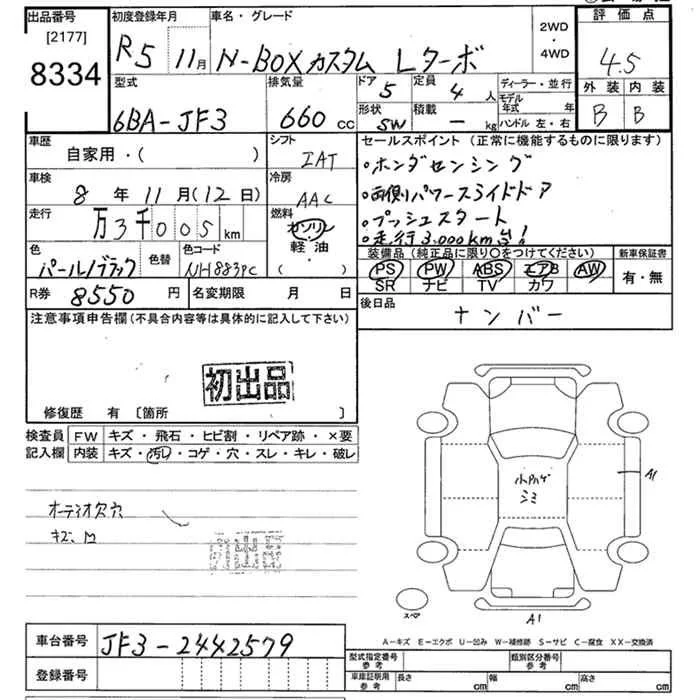 出品番号 [2177] 8334
初度登録年月 R5 11月
車名・グレード N-BOXカスタム Lターボ
2WD・4WD
評価点 4.5
外装 内装
B B
型式 6BA-JF3
排気量 660 cc
ドア 5
定員 4 人
形状 SW
積載 — kg
ディーラー・並行
モデル年式 年
ハンドル 左・右
車歴 自家用・( )
シフト IAT
車検 8年 11月(12日)
冷房 AAC
走行 万3千005km
燃料 ガソリン 軽・油 ( )
色 パールブラック 色替
色コード NH883PC
R券 8550円
名変期限 月 日
セールスポイント (正常に機能するものに限ります)
・ホンダセンシング
・両側パワースライドドア
・プッシュスタート
・走行3,000km台!
装備品(純正品に限り○をつけてください)
PS PW ABS エアB AW
SR ナビ TV カワ
新車保証書 有・無
後日品 ナンバー
注意事項申告欄(不具合内容等は具体的に記入して下さい)
初出品
修復歴 有 〔箇所 〕
検査員記入欄
FW キズ・飛石・ヒビ割・リペア跡・×要
内装 キズ・汚レ・コゲ・穴・スレ・キレ・破レ
オーディオ欠穴
キズ、
シミ
A1
スペア
A1
A－キズ E－エクボ U－凹み W－補修跡 S－サビ C－腐食 XX－交換済
車台番号 JF3-2442579
登録番号
型式指定番号 参考
類別区分番号 参考
車庫証明用 参考
長さ cm 幅 cm 高さ cm